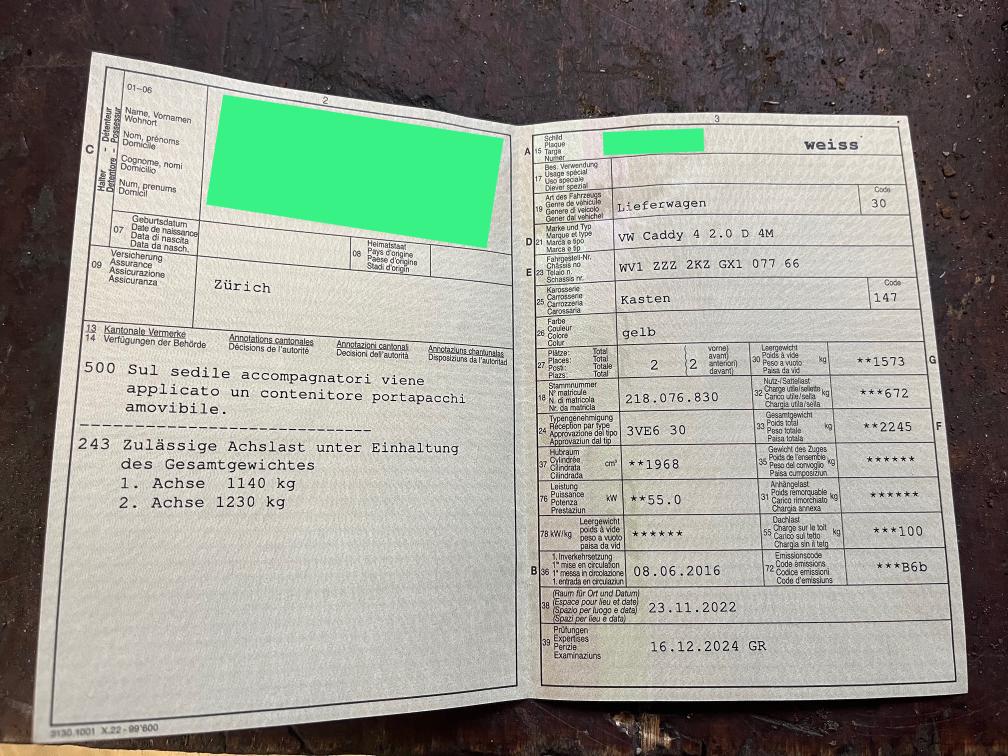 2
01-06
Name, Vornamen
Wohnort
Nom, prénoms
Domicile
Cognome, nomi
Domicilio
Num, prenums
Domicil
C
Halter - Détenteur
Detentore - Possessur
07
Geburtsdatum
Date de naissance
Data di nascita
Data da nasch.
08
Heimatstaat
Pays d'origine
Paese d'origine
Stadi d'origin
09
Versicherung
Assurance
Assicurazione
Assicuranza
Zürich
13 Kantonale Vermerke Annotations cantonales Annotazioni cantonali Annotaziuns chantunalas
14 Verfügungen der Behörde Décisions de l'autorité Decisioni dell'autorità Disposiziuns da l'autoritad
500 Sul sedile accompagnatori viene
applicato un contenitore portapacchi
amovibile.
243 Zulässige Achslast unter Einhaltung
des Gesamtgewichtes
1. Achse 1140 kg
2. Achse 1230 kg
3130.1001 X.22 - 99'600
3
A 15
Schild
Plaque
Targa
Numer
weiss
17
Bes. Verwendung
Usage spécial
Uso speciale
Diever spezial
19
Art des Fahrzeugs
Genre de véhicule
Genere di veicolo
Gener dal vehichel
Lieferwagen
Code
30
D 21
Marke und Typ
Marque et type
Marca e tipo
Marca e tip
VW Caddy 4 2.0 D 4M
E 23
Fahrgestell-Nr.
Châssis no
Telaio n.
Schassis nr.
WV1 ZZZ 2KZ GX1 077 66
25
Karosserie
Carrosserie
Carrozzeria
Carossaria
Kasten
Code
147
26
Farbe
Couleur
Colore
Colur
gelb
27
Plätze: Total
Places: Total
Posti: Totale
Plazs: Total
2
2
vorne)
avant)
anteriori)
davant)
30
Leergewicht
Poids à vide
Peso a vuoto
Paisa da vid
kg
**1573
G
18
Stammnummer
N° matricule
N. di matricola
Nr. da matricla
218.076.830
32
Nutz-/Sattellast
Charge utile/sellette
Carico utile/sella
Chargia utila/sella
kg
***672
24
Typengenehmigung
Réception par type
Approvazione del tipo
Approvaziun dal tip
3VE6 30
33
Gesamtgewicht
Poids total
Peso totale
Paisa totala
kg
**2245
F
37
Hubraum
Cylindrée
Cilindrata
Cilindrada
cm³
**1968
35
Gewicht des Zuges
Poids de l'ensemble
Peso del convoglio
Paisa cumposiziun
kg
******
76
Leistung
Puissance
Potenza
Prestaziun
kW
**55.0
31
Anhängelast
Poids remorquable
Carico rimorchiato
Chargia annexa
kg
******
78 kW/kg
Leergewicht
poids à vide
peso a vuoto
paisa da vid
******
55
Dachlast
Charge sur le toit
Carico sul tetto
Chargia sin il tetg
kg
***100
B 36
1. Inverkehrsetzung
1re mise en circulation
1a messa in circolazione
1. entrada en circulaziun
08.06.2016
72
Emissionscode
Code émissions
Codice emissioni
Code d'emissiuns
***B6b
38
(Raum für Ort und Datum)
(Espace pour lieu et date)
(Spazio per luogo e data)
(Spazi per lieu e data)
23.11.2022
39
Prüfungen
Expertises
Perizie
Examinaziuns
16.12.2024 GR